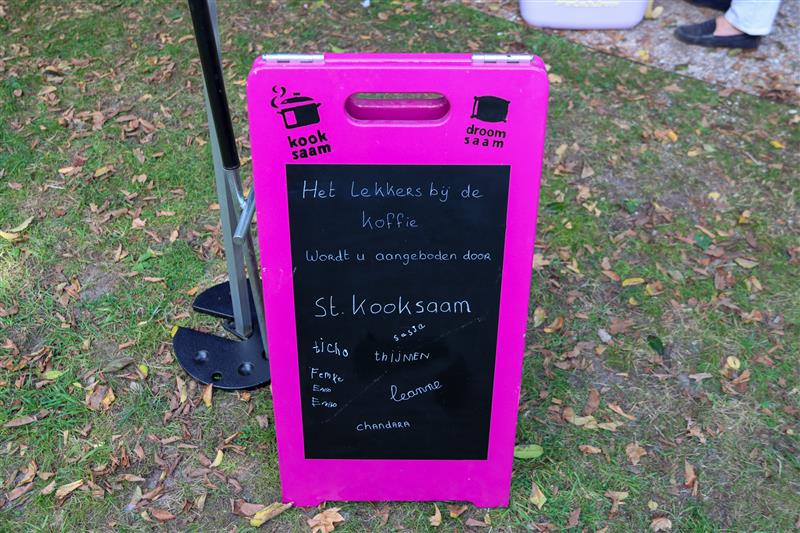 kook
saam
droom
saam
Het Lekkers bij de
koffie
Wordt u aangeboden door
St. Kooksaam
sasja
ticho
thijmen
Femke
Enso
leanne
chandara